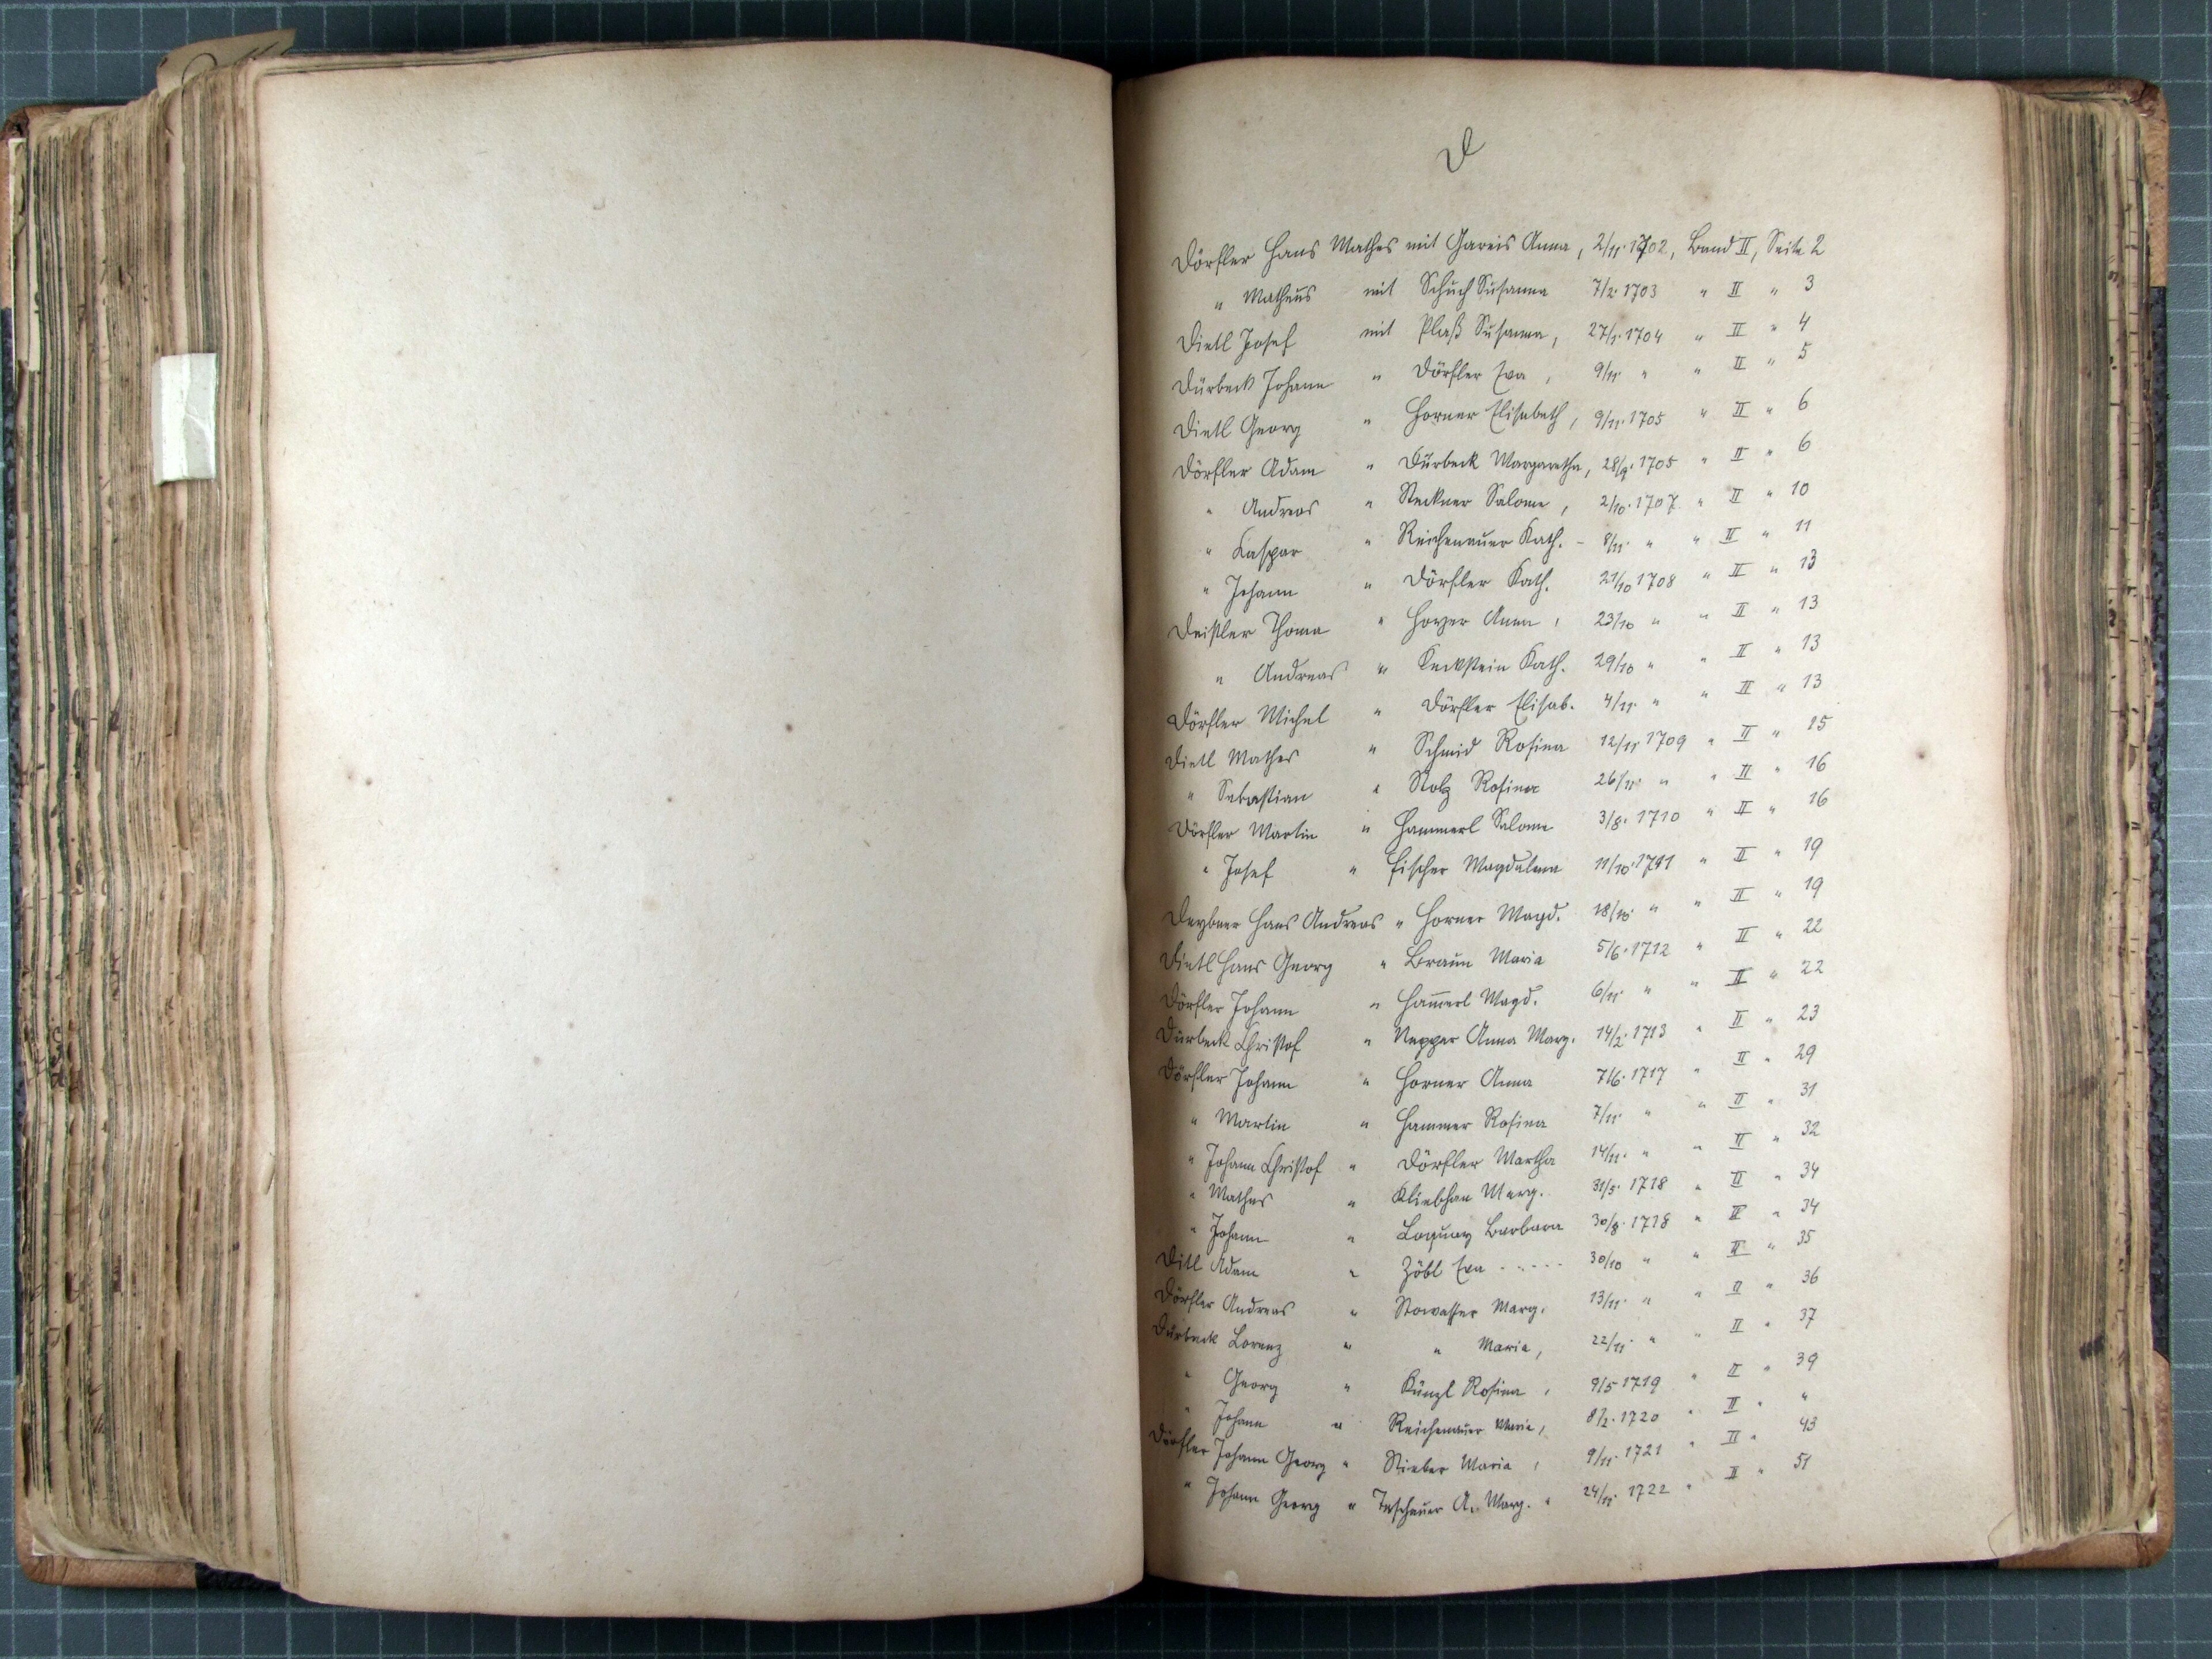 D
Dörfler Hans Mathes mit Gareis Anna, 2/11. 1702, Band II, Seite 2
" Matheus mit Schuch Susanna 7/2. 1703 " II " 3
Dietl Josef mit Plaß Susanna, 27/1. 1704 " II " 4
Dürbeck Johann " Dörfler Eva, 9/11. " " II " 5
Dietl Georg " Horner Elisabeth, 9/11. 1705 " II " 6
Dörfler Adam " Dürbeck Margaretha, 28/9. 1705 " II " 6
" Andreas " Steckner Salome, 2/10. 1707 " II " 10
" Kaspar " Reichenauer Kath. - 8/11. " " II " 11
" Johann " Dörfler Kath. 21/10 1708 " II " 13
Deistler Thoma " Hoyer Anna, 23/10 " " II " 13
" Andreas " Keckstein Kath. 29/10 " " II " 13
Dörfler Michel " Dörfler Elisab. 4/11. " " II " 13
Dietl Mathes " Schmid Rosina 12/11 1709 " II " 15
" Sebastian " Stolz Rosina 26/11. " " II " 16
Dörfler Martin " Hammerl Salome 3/8. 1710 " II " 16
" Josef " Fischer Magdalena 11/10. 1711 " II " 19
Deybner Hans Andreas " Horner Magd. 18/10. " " II " 19
Dietl Hans Georg " Braun Maria 5/6. 1712 " II " 22
Dörfler Johann " Ham̅erl Magd. 6/11. " " II " 22
Dürbeck Christof " Anna Marg. 14/2. 1713 " II " 23
Dörfler Johann " Horner Anna 7/6. 1717 " II " 29
" Martin " Hammer Rosina 7/11. " " II " 31
" Johann Christof " Dörfler Martha 14/11. " " II " 32
" Mathes " Kliebhan Marg. 31/5. 1718 " II " 34
" Johann " Loquay Barbara 30/8. 1718 " II " 34
Ditl Adam " Zöbl Eva - - - - - 30/10 " " II " 35
Dörfler Andreas " Stowasser Marg. 13/11. " " II " 36
Dürbeck Lorenz " " Maria, 22/11. " " II " 37
" Georg " Künzl Rosina, 9/5 1719 " II " 39
" Johann " Reichenauer Maria, 8/2. 1720 " II " "
Dörfler Johann Georg " Stieber Maria, 9/11. 1721 " II " 43
" Johann Georg " Teschauer A. Marg. " 24/11. 1722 " II " 51